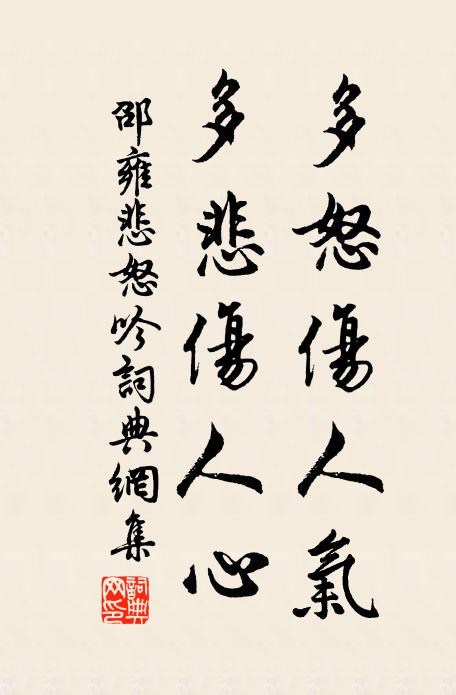 多怒傷人氣
多悲傷人心
邵雍悲怒吟詞典網集
詞典
网印